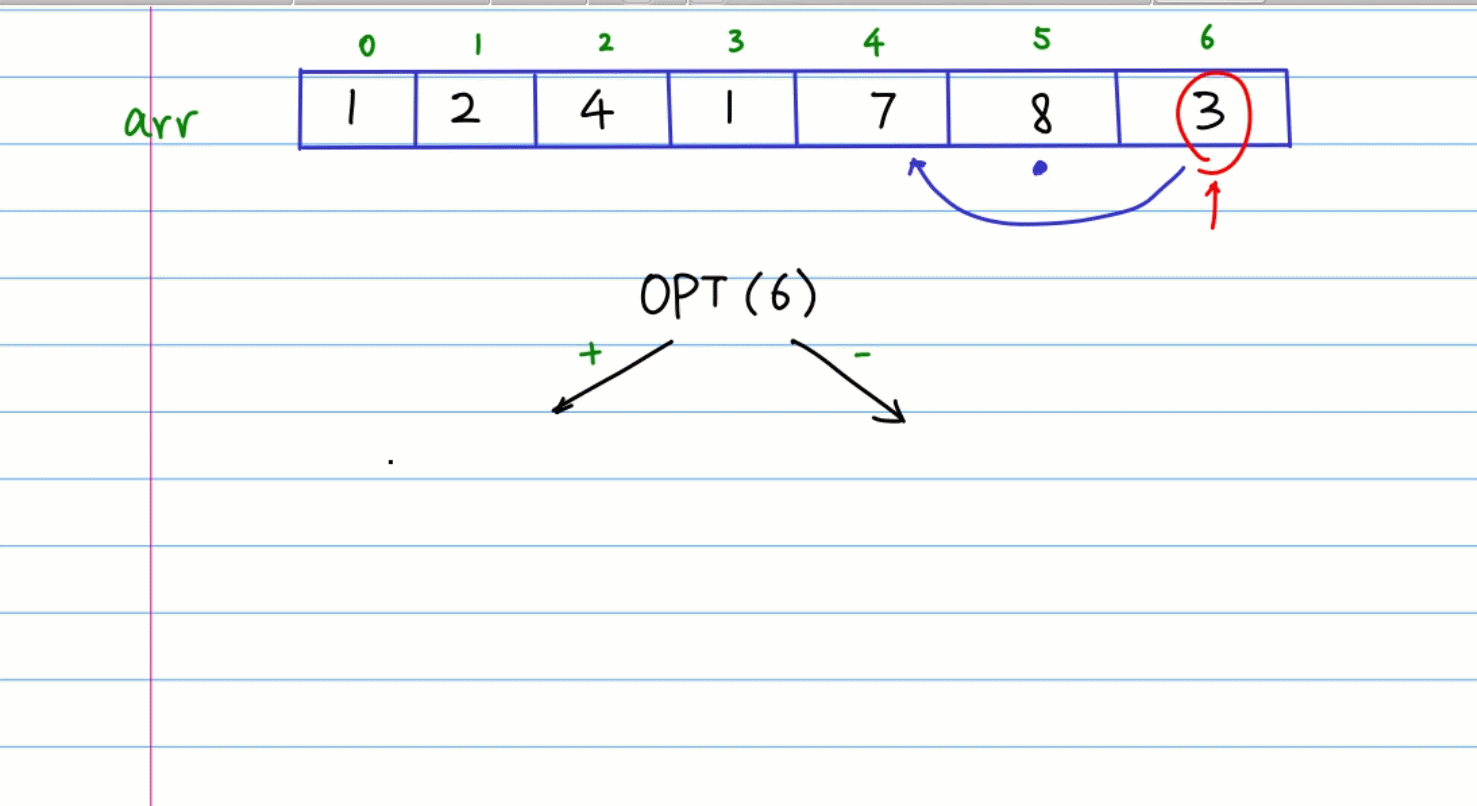 0 1 2 3 4 5 6
arr 1 2 4 1 7 8 3
OPT (6)
+ -